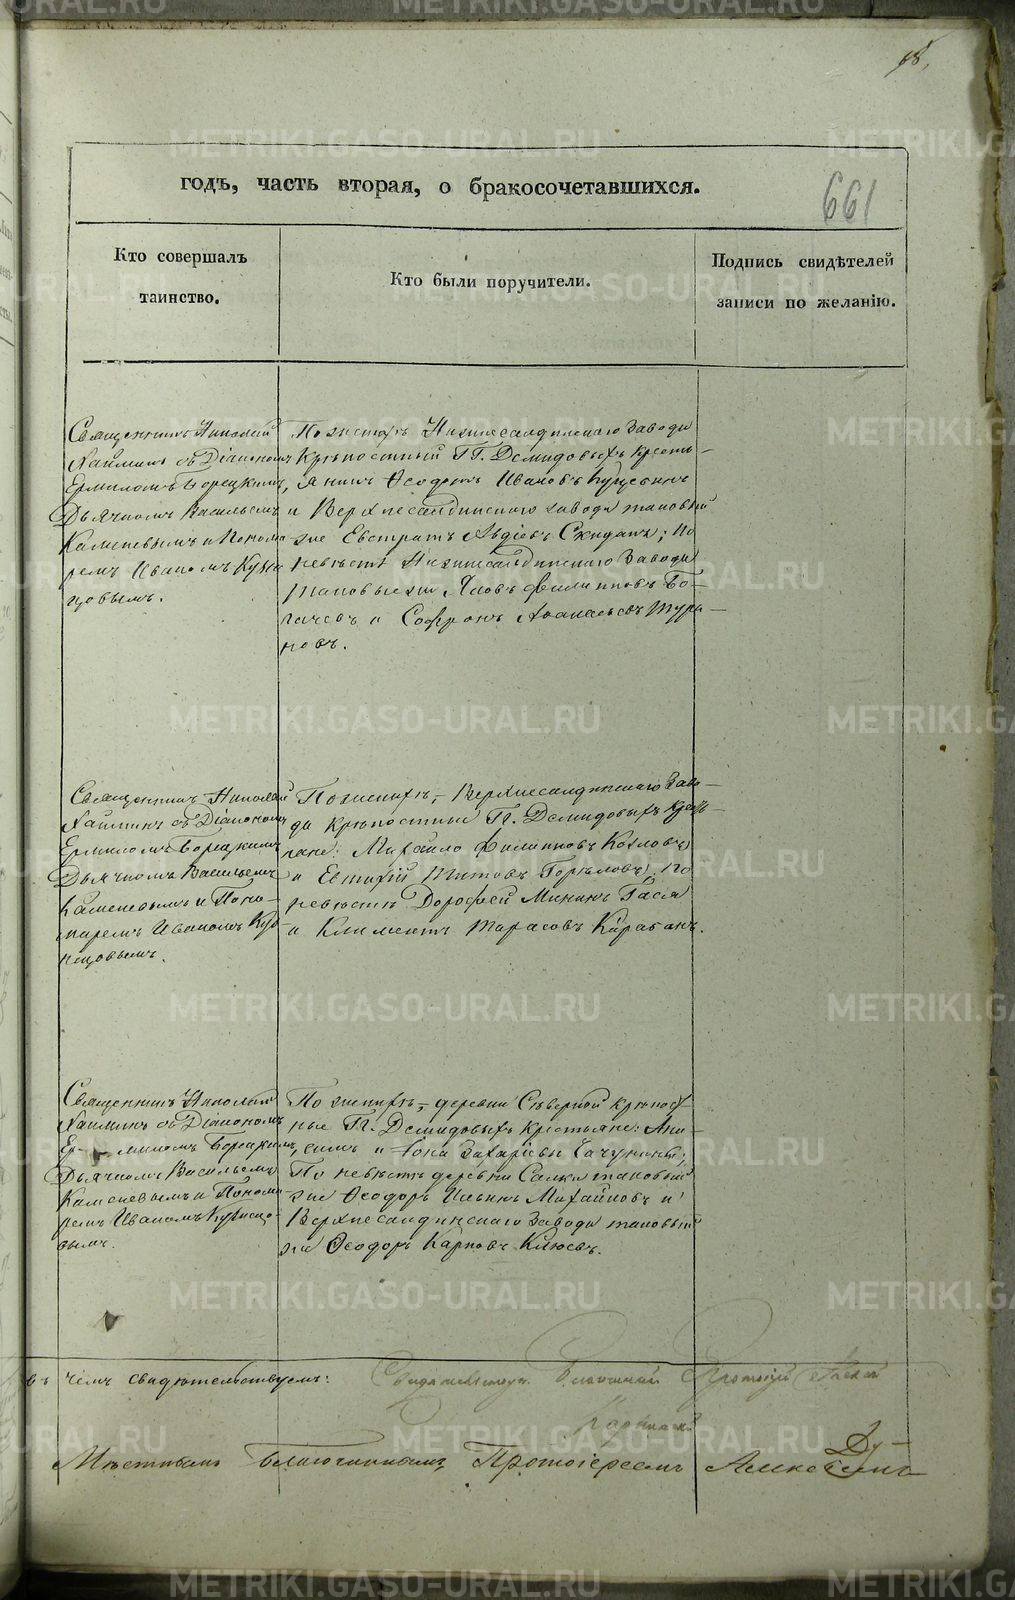 68,
годъ, часть вторая, о бракосочетавшихся.
661
Кто совершалъ
таинство.
Кто были поручители.
Подпись свидѣтелей
записи по желанію.
Священникъ Николай
съ Діакономъ
Ермиломъ Борецкимъ,
Дьячкомъ Васильемъ
Каменевымъ и Понома-
ремъ Иваномъ Кузне
цовымъ.
По женихѣ Нижнесалдинскаго Завода
Крѣпостный ГГ. Демидовыхъ Кресть-
янинъ Ѳеодоръ Ивановъ
и Верхнесалдинскаго завода таковый
же Евстратъ Авдіевъ По
невѣстѣ Нижнесалдинскаго Завода
таковые же Яковъ Филипповъ Бо-
и Софронъ Аѳанасьевъ Тура-
новъ.
Священникъ Николай
съ Діакономъ
Ермиломъ Борецкимъ
Дьячкомъ Васильемъ
Каменевымъ и Поно-
маремъ Иваномъ Куз-
нецовымъ.
По женихѣ, Верхнесалдинскаго Заво-
да крѣпостные ГГ. Демидовыхъ кресть-
яне: Михайло Филипповъ Козловъ
и Евтихій Титовъ Горѣловъ; По
невѣстѣ Дорофей Мининъ
и Климентъ Тарасовъ Карабанъ.
Священникъ Николай
съ Діакономъ
Ермиломъ Борецкимъ,
Дьячкомъ Васильемъ
Каменевымъ и Понома-
ремъ Иваномъ Кузнецо-
вымъ.
По женихѣ, деревни Сѣверной крѣпост-
ные ГГ. Демидовыхъ Крестьяне: Ани-
симъ и Іона Захаріевы
По невѣстѣ деревни таковый
же Ѳеодоръ Ильинъ Михайловъ и
Верхнесалдинскаго Завода таковый
же Ѳеодоръ Карповъ Клюевъ.
въ чемъ свидѣтельствуемъ:
Мѣстнымъ Благочиннымъ Протоіереемъ
METRIKI.GASO-URAL.RU